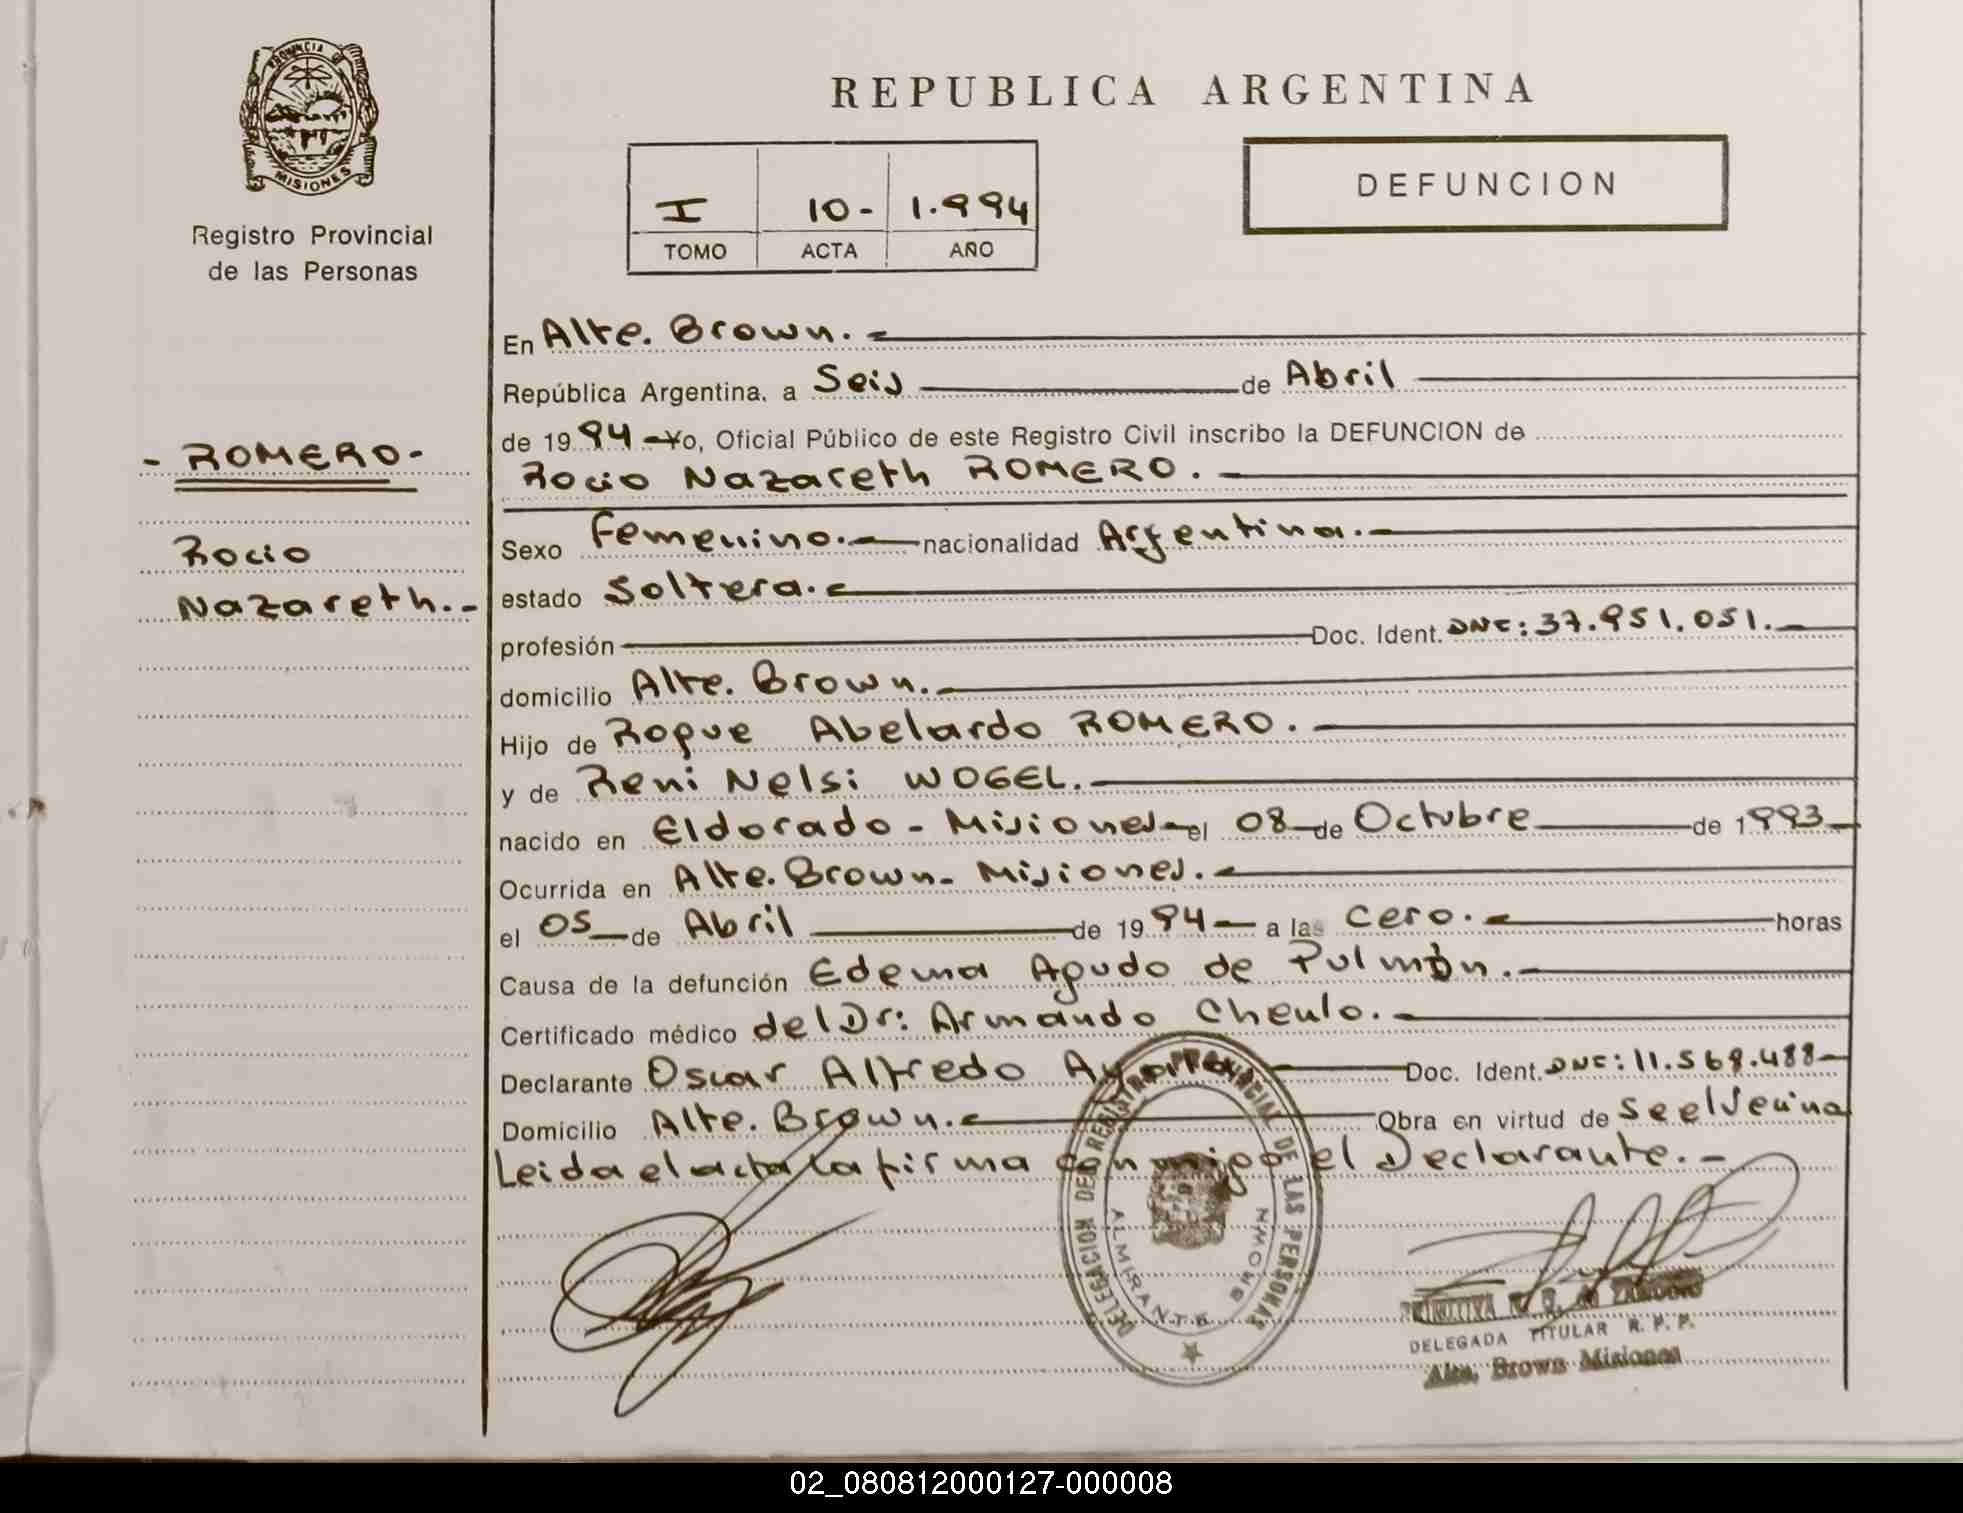 PROVINCIA DE
MISIONES
Registro Provincial
de las Personas
- ROMERO -
Rocio
Nazareth.-
REPUBLICA ARGENTINA
I 10- 1.994
TOMO ACTA AÑO
DEFUNCION
En Alte. Brown.
República Argentina, a Seis de Abril
de 1994 Yo, Oficial Público de este Registro Civil inscribo la DEFUNCION de
Rocio Nazareth ROMERO.
Sexo Femenino. nacionalidad Argentina.
estado Soltera.
profesión Doc. Ident. DNI: 37.951.051.
domicilio Alte. Brown.
Hijo de Roque Abelardo ROMERO.
y de Reni Nelsi WOGEL.
nacido en Eldorado - Misiones el 08 de Octubre de 1993
Ocurrida en Alte. Brown - Misiones.
el 05 de Abril de 1994 a las cero. horas
Causa de la defunción Edema Agudo de Pulmón.
Certificado médico del Dr: Armando Chenlo.
Declarante Oscar Alfredo Doc. Ident. DNI: 11.569.488
Domicilio Alte. Brown. Obra en virtud de
Leida el acta la firma conmigo el Declarante.-
DELEGACION DEL REGISTRO PROVINCIAL DE LAS PERSONAS
ALMIRANTE BROWN
DELEGADA TITULAR R. P. P.
Alte. Brown Misiones
02_080812000127-000008